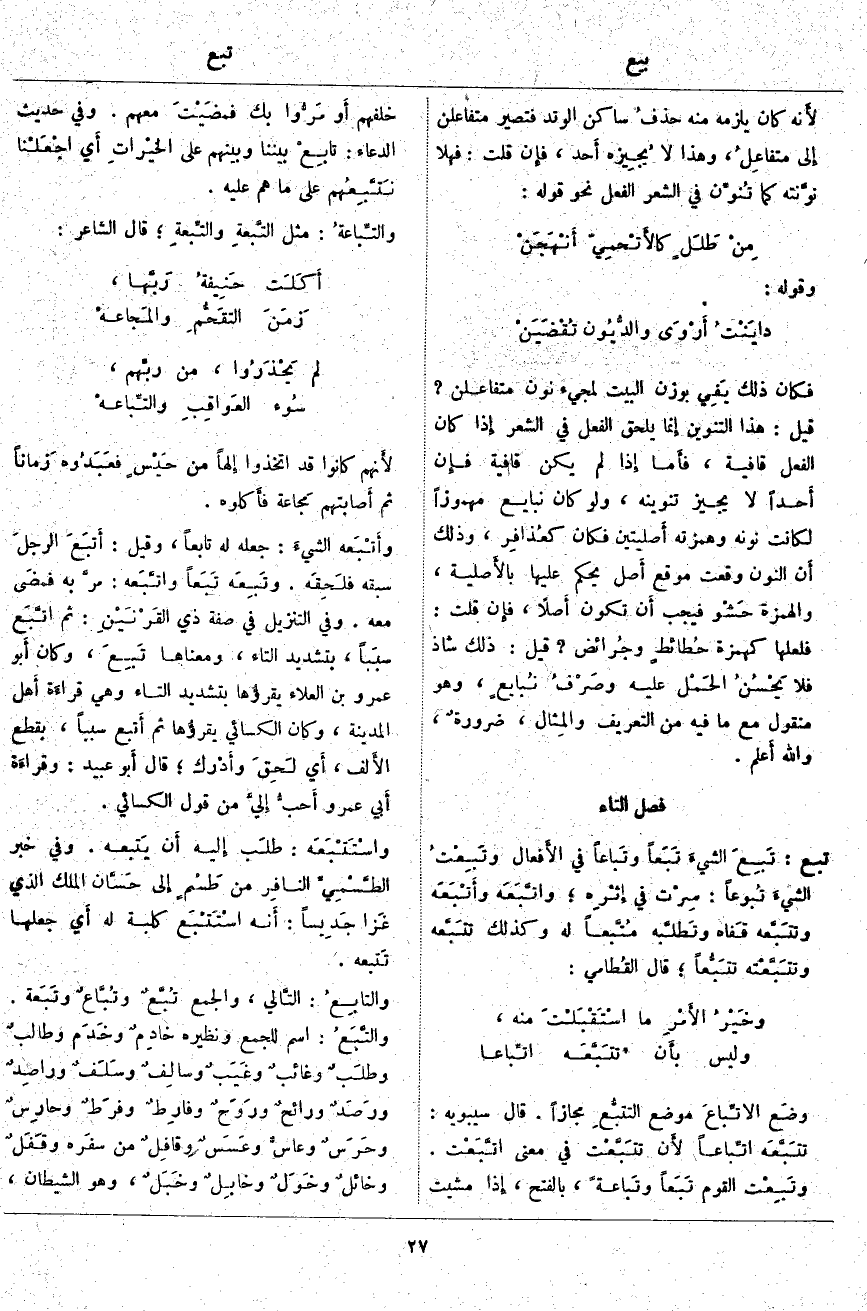 بيع
تبع
لأنه كان يلزمه منه حذفُ ساكن الوتد فتصير متفاعلن
إلى متفاعلُ ، وهذا لا يُجيزه أحد ، فإن قلت : فهلا
نوّنته كما تُنوّن في الشعر الفعل نحو قوله :
مِنْ طَلَلٍ كالأتْحميّ أنْهَجَنْ
وقوله :
دايَنْتُ أَرْوَى والدُّيُون تُقْضَيَنْ
فكان ذلك يَفي بوزن البيت لمجيء نون متفاعلن ؟
قيل : هذا التنوين إنما يلحق الفعل في الشعر إذا كان
الفعل قافية ، فأما إذا لم يكن قافية فإن
أحداً لا يجيز تنوينه ، ولو كان نبايع مهموزاً
لكانت نونه وهمزته أصليتين فكان كعُذافِر ، وذلك
أن النون وقعت موقع أصل يحكم عليها بالأصلية ،
والهمزة حَشْو فيجب أن تكون أصلًا ، فإن قلت :
فلعلها كهمزة حُطائطٍ وجُرائض ؟ قيل : ذلك شاذ
فلا يَحْسُنُ الحَمْل عليه وصَرْفُ نُبايعٍ ، وهو
منقول مع ما فيه من التعريف والمِثال ، ضرورةٌ ،
والله أعلم .
فصل التاء
تبع : تَبِعَ الشيءَ تَبَعاً وتَباعاً في الأفعال وتَبِعْتُ
الشيءَ تُبوعاً : سِرْت في إثْرِه ؛ واتَّبَعَه وأَتْبَعَه
وتتَبَّعه قَفاه وتَطلَّبه مُتَّبعاً له وكذلك تتَبَّعه
وتتَبَّعْته تتَبُّعاً ؛ قال القُطامي :
وخَيْرُ الأَمْرِ ما اسْتَقْبَلْتَ منه ،
وليس بأن تتَبَّعَه اتِّباعا
وضَع الاتِّباعَ موضع التتبُّعِ مجازاً . قال سيبويه :
تتَبَّعَه اتِّباعاً لأن تتَبَّعْت في معنى اتَّبَعْت .
وتَبِعْت القوم تَبَعاً وتَباعةً ، بالفتح ، إذا مشيت
خلفهم أو مَرُّوا بك فمضَيْتَ معهم . وفي حديث
الدعاء : تابِعْ بيننا وبينهم على الخيْراتِ أي اجْعَلْنا
نَتَّبِعُهم على ما هم عليه .
والتِّباعةُ : مثل التَّبعةِ والتِّبعةِ ؛ قال الشاعر :
أكَلَت حَنِيفةُ رَبَّها ،
زَمنَ التقَحُّمِ والمَجاعهْ
لم يَحْذَرُوا ، من ربِّهم ،
سُوء العَواقِبِ والتِّباعهْ
لأنهم كانوا قد اتخذوا إلهاً من حَيْسٍ فعَبَدُوه زَماناً
ثم أصابتهم مَجاعة فأكلوه .
وأتْبَعه الشيءَ : جعله له تابعاً ، وقيل : أتبَعَ الرجلَ
سبقه فلَحِقَه . وتَبِعَه تَبَعاً واتَّبَعه : مرَّ به فمضَى
معه . وفي التنزيل في صفة ذي القَرْنَيْنِ : ثم اتَّبَع
سبَباً ، بتشديد التاء ، ومعناها تَبِعَ ، وكان أبو
عمرو بن العلاء يقرؤها بتشديد التاء وهي قراءة أهل
المدينة ، وكان الكسائي يقرؤها ثم أتبع سبباً ، بقطع
الألف ، أي لَحِقَ وأَدْرك ؛ قال أبو عبيد : وقراءة
أبي عمرو أحبُّ إليَّ من قول الكسائي .
واسْتَتْبَعَه : طلَب إليه أن يَتبعه . وفي خبر
الطَّسْمِيِّ النافِرِ من طَسْمٍ إلى حَسَّان الملك الذي
غَزا جَدِيساً : أنه اسْتَتْبَع كلبة له أي جعلها
تَتبعه .
والتابِعُ : التَّالي ، والجمع تُبَّعٌ وتُبَّاعٌ وتَبَعة .
والتَّبَعُ : اسم للجمع ونظيره خادِمٌ وخَدَم وطالبٌ
وطلَبٌ وغائبٌ وغَيَبٌ وسالِفٌ وسَلَفٌ وراصِدٌ
ورَصَدٌ ورائحٌ ورَوَحٌ وفارِطٌ وفرَطٌ وحارِسٌ
وحَرَسٌ وعاسٌّ وعَسَسٌ وقافِلٌ من سفَره وقَفَلٌ
وخائلٌ وخَوَلٌ وخابِلٌ وخَبَلٌ ، وهو الشيطان ،
٢٧